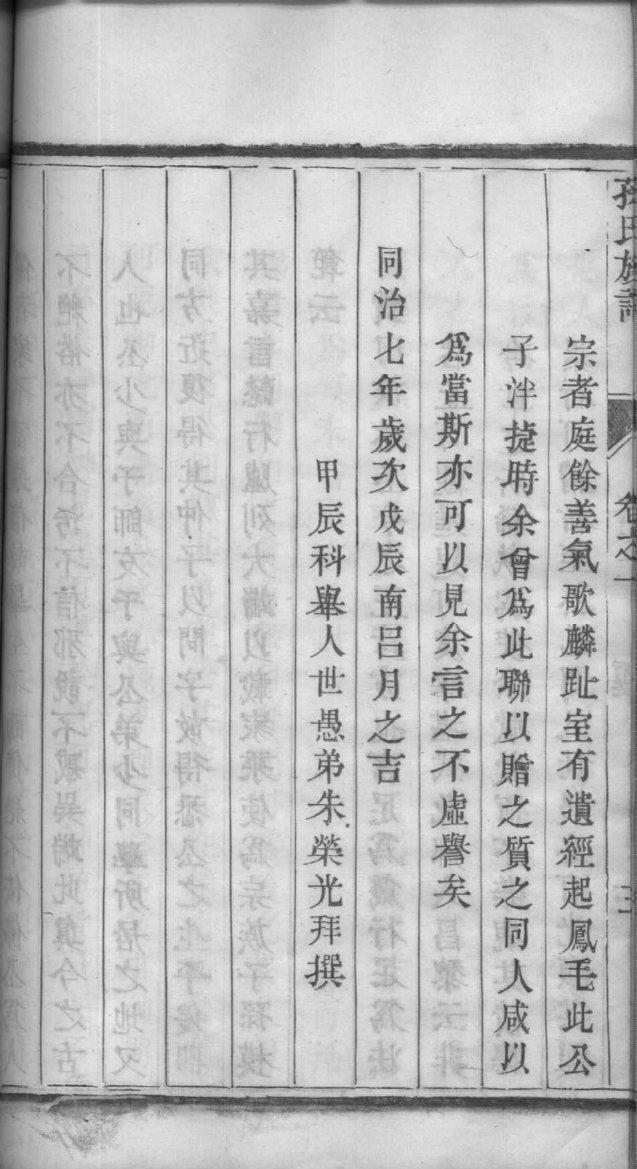 孫氏族譜
卷之一
宗者庭餘善氣歌麟趾室有遺經起鳳毛此公
子泮捷時余曾爲此聯以贈之質之同人咸以
爲當斯亦可以見余言之不虛譽矣
同治七年歲次戊辰南呂月之吉
甲辰科舉人世愚弟朱榮光拜撰